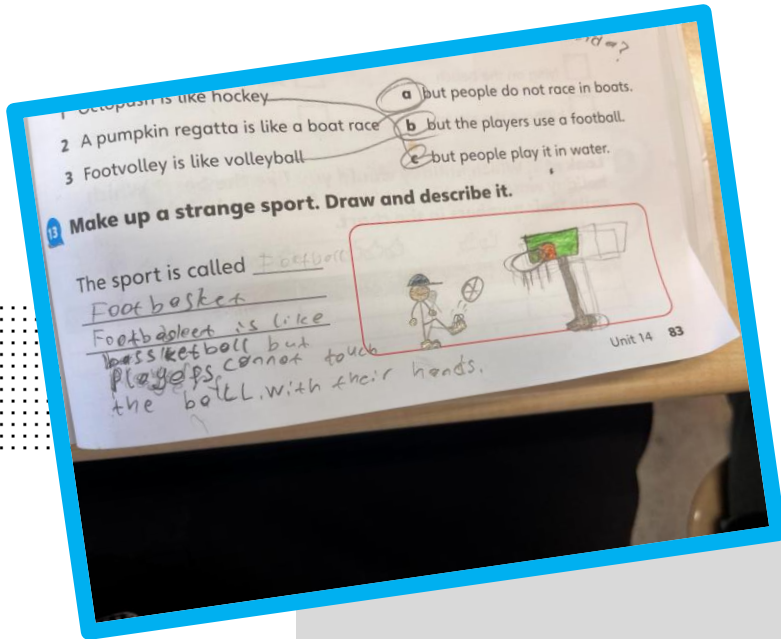 1 Octopush is like hockey
a but people do not race in boats.
2 A pumpkin regatta is like a boat race
b but the players use a football.
3 Footvolley is like volleyball
c but people play it in water.
13 Make up a strange sport. Draw and describe it.
The sport is called
Footbasket
is like
bassketboll but
players cannot touch
the ball with their hands.
Unit 14 83